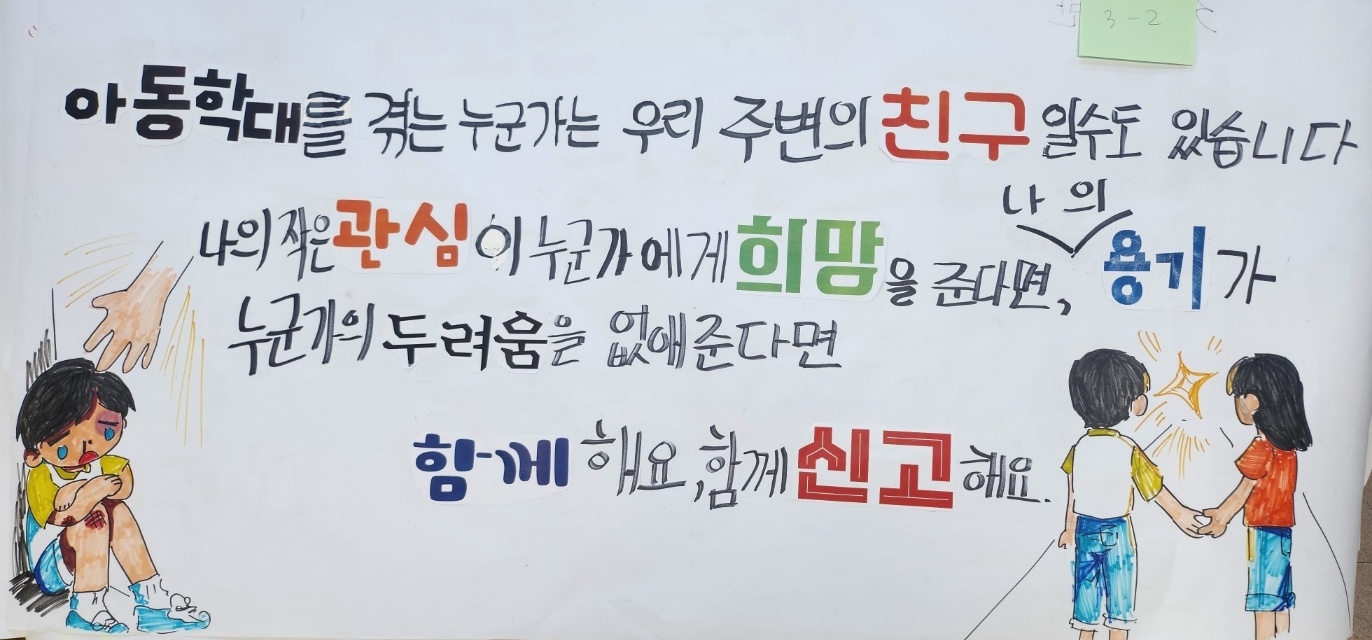 3-2
아동학대를 겪는 누군가는 우리 주변의 친구 일수도 있습니다
나의 작은 관심이 누군가에게 희망을 준다면, 나의 용기가
누군가의 두려움을 없애준다면
함께 해요, 함께 신고 해요.